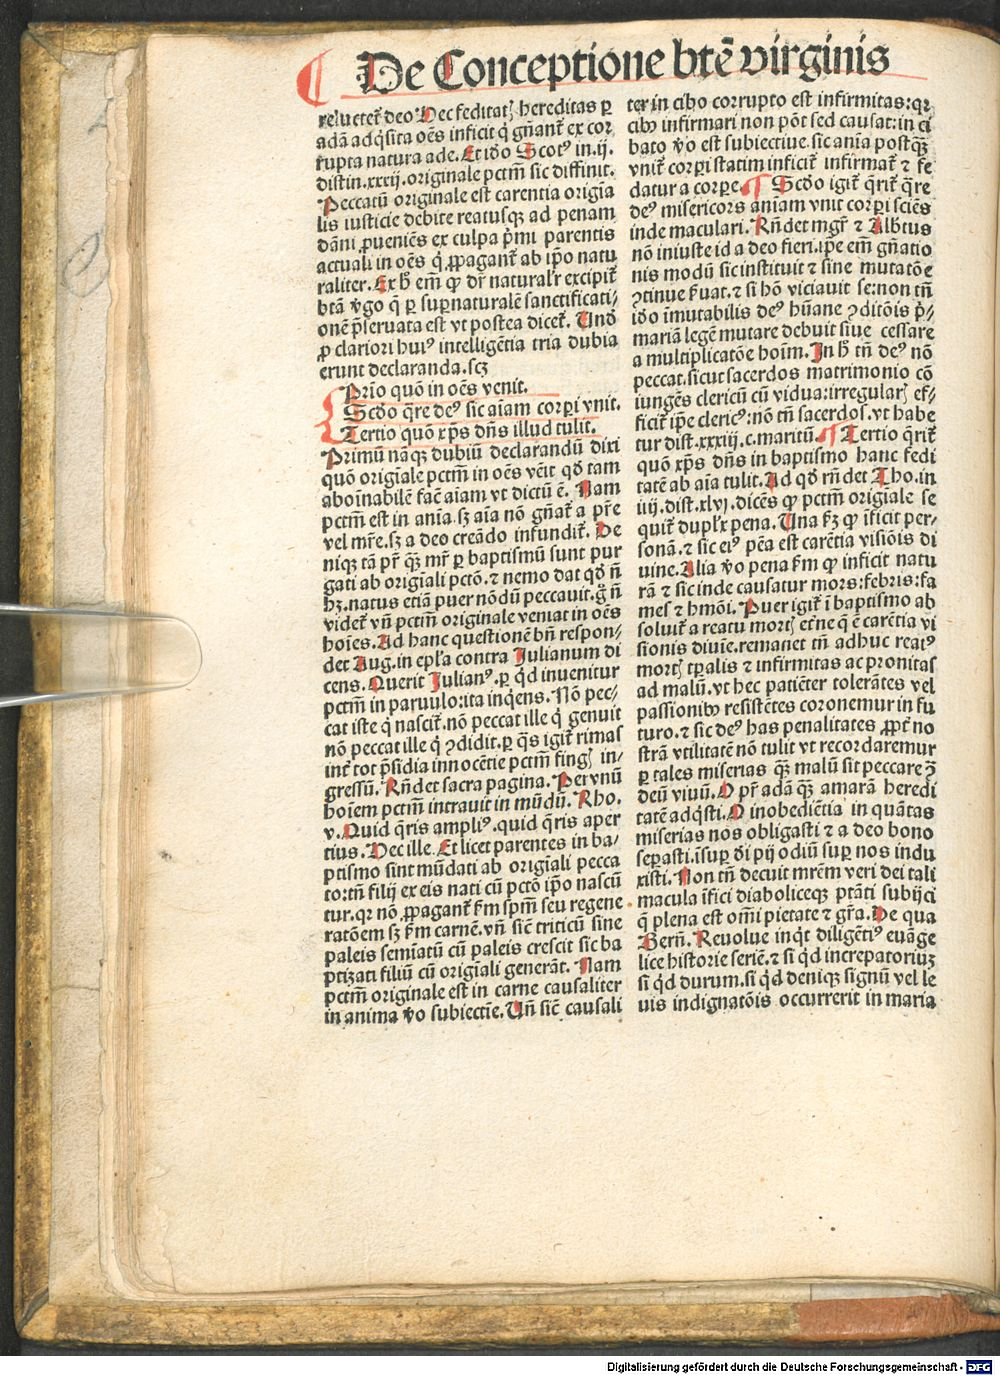 De Conceptione btē virginis
reluctet᷑ deo Nec feditatꝭ hereditas ꝑ
adā adq̇sita oēs inficit q̇ gn̄ant᷑ ex cor
rupta natura ade. Et iđo Scotꝰ in .ij.
distin. xxxij. originale pctm̄ sic diffinit.
Peccatū originale est carentia origia
lis iusticie debite reatusqꝫ ad penam
dāni ꝓueniēs ex culpa p̄mi parentis
actuali in oēs q̇ ꝓpagant᷑ ab ip̄o natu
raliter. Ex ħ em̄ ꝙ dr̄ naturalr̄ excipit᷑
btā v̄go q̄ ꝑ suꝑnaturalē sanctificati⸗
onē p̄seruata est vt postea dicet᷑. Vnđ
ꝓ clariori huiꝰ intelligētia tria dubia
erunt declaranda. scꝫ
Prīo quō in oēs venit.
Scđo q̄re deꝰ sic aīam corꝑi vnit.
Tertio quō xp̄s dn̄s illud tulit.
Primū nāqꝫ dubiū declarandū dixi
quō origīale pctm̄ in oēs vēit qđ tam
aboīnabilē facē aīam vt dictū ē. Nam
pctm̄ est in anīa. sꝫ aīa nō gn̄at᷑ a pr̄e
vel mr̄e. sꝫ a deo creādo infundit᷑. De
niqꝫ tā pr̄ qꝫ̄ mr̄ ꝑ baptismū sunt pur
gati ab origīali pctō. ⁊ nemo dat qđ n̄
hꝫ. natus etiā puer nōdū peccauit. g̊ n̄
videt᷑ vn̄ pctm̄ originale veniat in oēs
hoīes. Ad hanc questionē bn̄ respon⸗
det Aug. in epl̄a contra Julianum di
cens. Querit Julianꝰ. ꝑ q̇d inuenitur
pctm̄ in paruulo. ita inq̇ens. Nō pec⸗
cat iste q̇ nascit᷑. nō peccat ille q̇ genuit
nō peccat ille q̇ ꝯdidit. ꝑ q̄s igit᷑ rimas
int᷑ tot p̄sidia innocētie pctm̄ fingꝭ in⸗
gressū. Rn̄det sacra pagina. Per vnū
hoīem pctm̄ intrauit in mūdū. Rho.
v. Quid q̄ris ampliꝰ. quid q̄ris aper
tius. Hec ille. Et licet parentes in ba⸗
ptismo sint mūdati ab origīali pecca
to: tn̄ filij ex eis nati cū pctō ip̄o nascū
tur. qr nō ꝓpagant᷑ ẜm spm̄ seu regene
ratōem sꝫ ẜm carnē. vn̄ sic̄ triticū sine
paleis semīatū cū paleis crescit sic ba
ptizati filiū cū origīali generāt. Nam
pctm̄ originale est in carne causaliter
in anima v̄o subiectie. Vn̄ sic̄ causali
ter in cibo corrupto est infirmitas: qr
cibꝰ infirmari non pōt sed causat: in ci
bato v̄o est subiectiue. sic anīa postqꝫ̄
vnit᷑ corꝑi statim inficit᷑ infirmat᷑ ⁊ fe
datur a corꝑe. ¶ Scđo igit᷑ q̄rit᷑ q̄re
deꝰ misericors anīam vnit corꝑi sciēs
inde maculari. Rn̄det mgr̄ ⁊ Alb̄tus
nō iniuste id a deo fieri. ip̄e em̄ gn̄atio
nis modū sic instituit ⁊ sine mutatōe
ꝯtinue ẜuat. ⁊ si hō viciauit se: non tn̄
iđo īmutabilis deꝰ hūane ꝯditōis p̄⸗
mariā legē mutare debuit siue cessare
a multiplicatōe hoīm. In ħ tn̄ deꝰ nō
peccat. sicut sacerdos matrimonio cō
iungēs clericū cū vidua: irregularꝭ ef⸗
ficit᷑ ip̄e clericꝰ: nō tn̄ sacerdos. vt habe
tur dist. xxxiij. c. maritū. ¶ Tertio q̄rit᷑
quō xp̄s dn̄s in baptismo hanc fedi
tatē ab aīa tulit. Ad qđ rn̄det Tho. in
iiij. dist. xlvj. dicēs ꝙ pctm̄ origīale se
quit᷑ dupl̄x pena. Vna ẜꝫ ꝙ īficit per⸗
sonā. ⁊ sic eiꝰ pēa est carētia visiōis di
uine. Alia v̄o pena ẜm ꝙ inficit natu
rā ⁊ sic inde causatur mors: febris: fa
mes ⁊ hmōi. Puer igit᷑ ī baptismo ab
soluit᷑ a reatu mortꝭ et̄ne q̄ ē carētia vi
sionis diuīe. remanet tn̄ adhuc reatꝰ
mortꝭ tꝑalis ⁊ infirmitas ac pronitas
ad malū. vt hec patiēter tolerātes vel
passionibꝰ resistētes coronemur in fu
turo. ⁊ sic deꝰ has penalitates ꝓpt᷑ no
strā vtilitatē nō tulit vt recordaremur
ꝑ tales miserias qꝫ̄ malū sit peccare ꝯ̄
deū viuū. O pr̄ adā qꝫ̄ amarā heredi
tatē adq̇sti. O inobediētia in quātas
miserias nos obligasti ⁊ a deo bono
seꝑasti. īsuꝑ đi pij odiū suꝑ nos indu
xisti. Non tn̄ decuit mr̄em veri dei tali
macula īfici diaboliceqꝫ ptāti subijci
q̄ plena est om̄i pietate ⁊ gr̄a. De qua
Bern̄. Reuolue inq̇t diligētiꝰ euāge
lice historie seriē. ⁊ si q̇d increpatoriūꝫ
si q̇d durum. si q̇d denique signū vel le
uis indignatōis occurrerit in maria
Digitalisierung gefördert durch die Deutsche Forschungsgemeinschaft - DFG